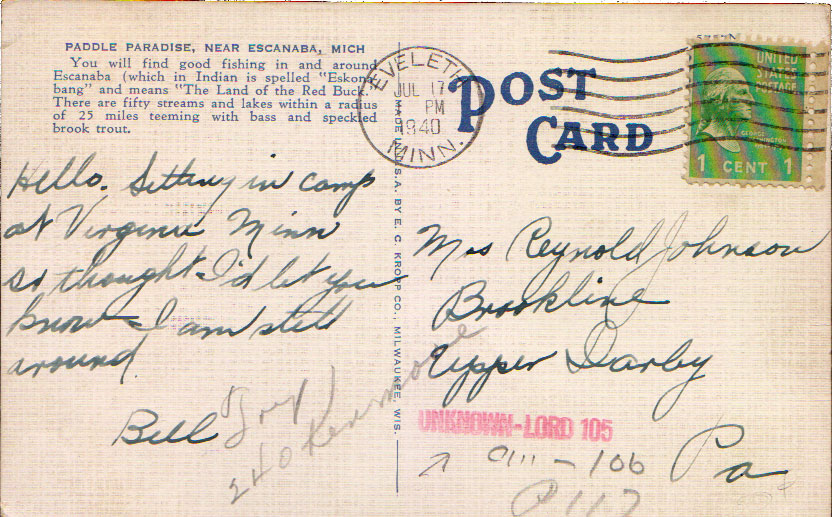 PADDLE PARADISE, NEAR ESCANABA, MICH
You will find good fishing in and around
Escanaba (which in Indian is spelled "Eskona-
bang" and means "The Land of the Red Buck."
There are fifty streams and lakes within a radius
of 25 miles teeming with bass and speckled
brook trout.
EVELETH
JUL 17
PM
1940
MINN.
POST
CARD
UNITED
STATES
POSTAGE
GEORGE
WASHINGTON
1 CENT 1
Hello. Sitting in camp
at Virginia Minn
so thought I'd let you
know I am still
around
Bill
MADE IN U.S.A. BY E. C. KROPP CO., MILWAUKEE, WIS.
Mrs Reynold Johnson
Brookline
Upper Darby
Pa
240 Kenmore
UNKNOWN-LORD 105
106